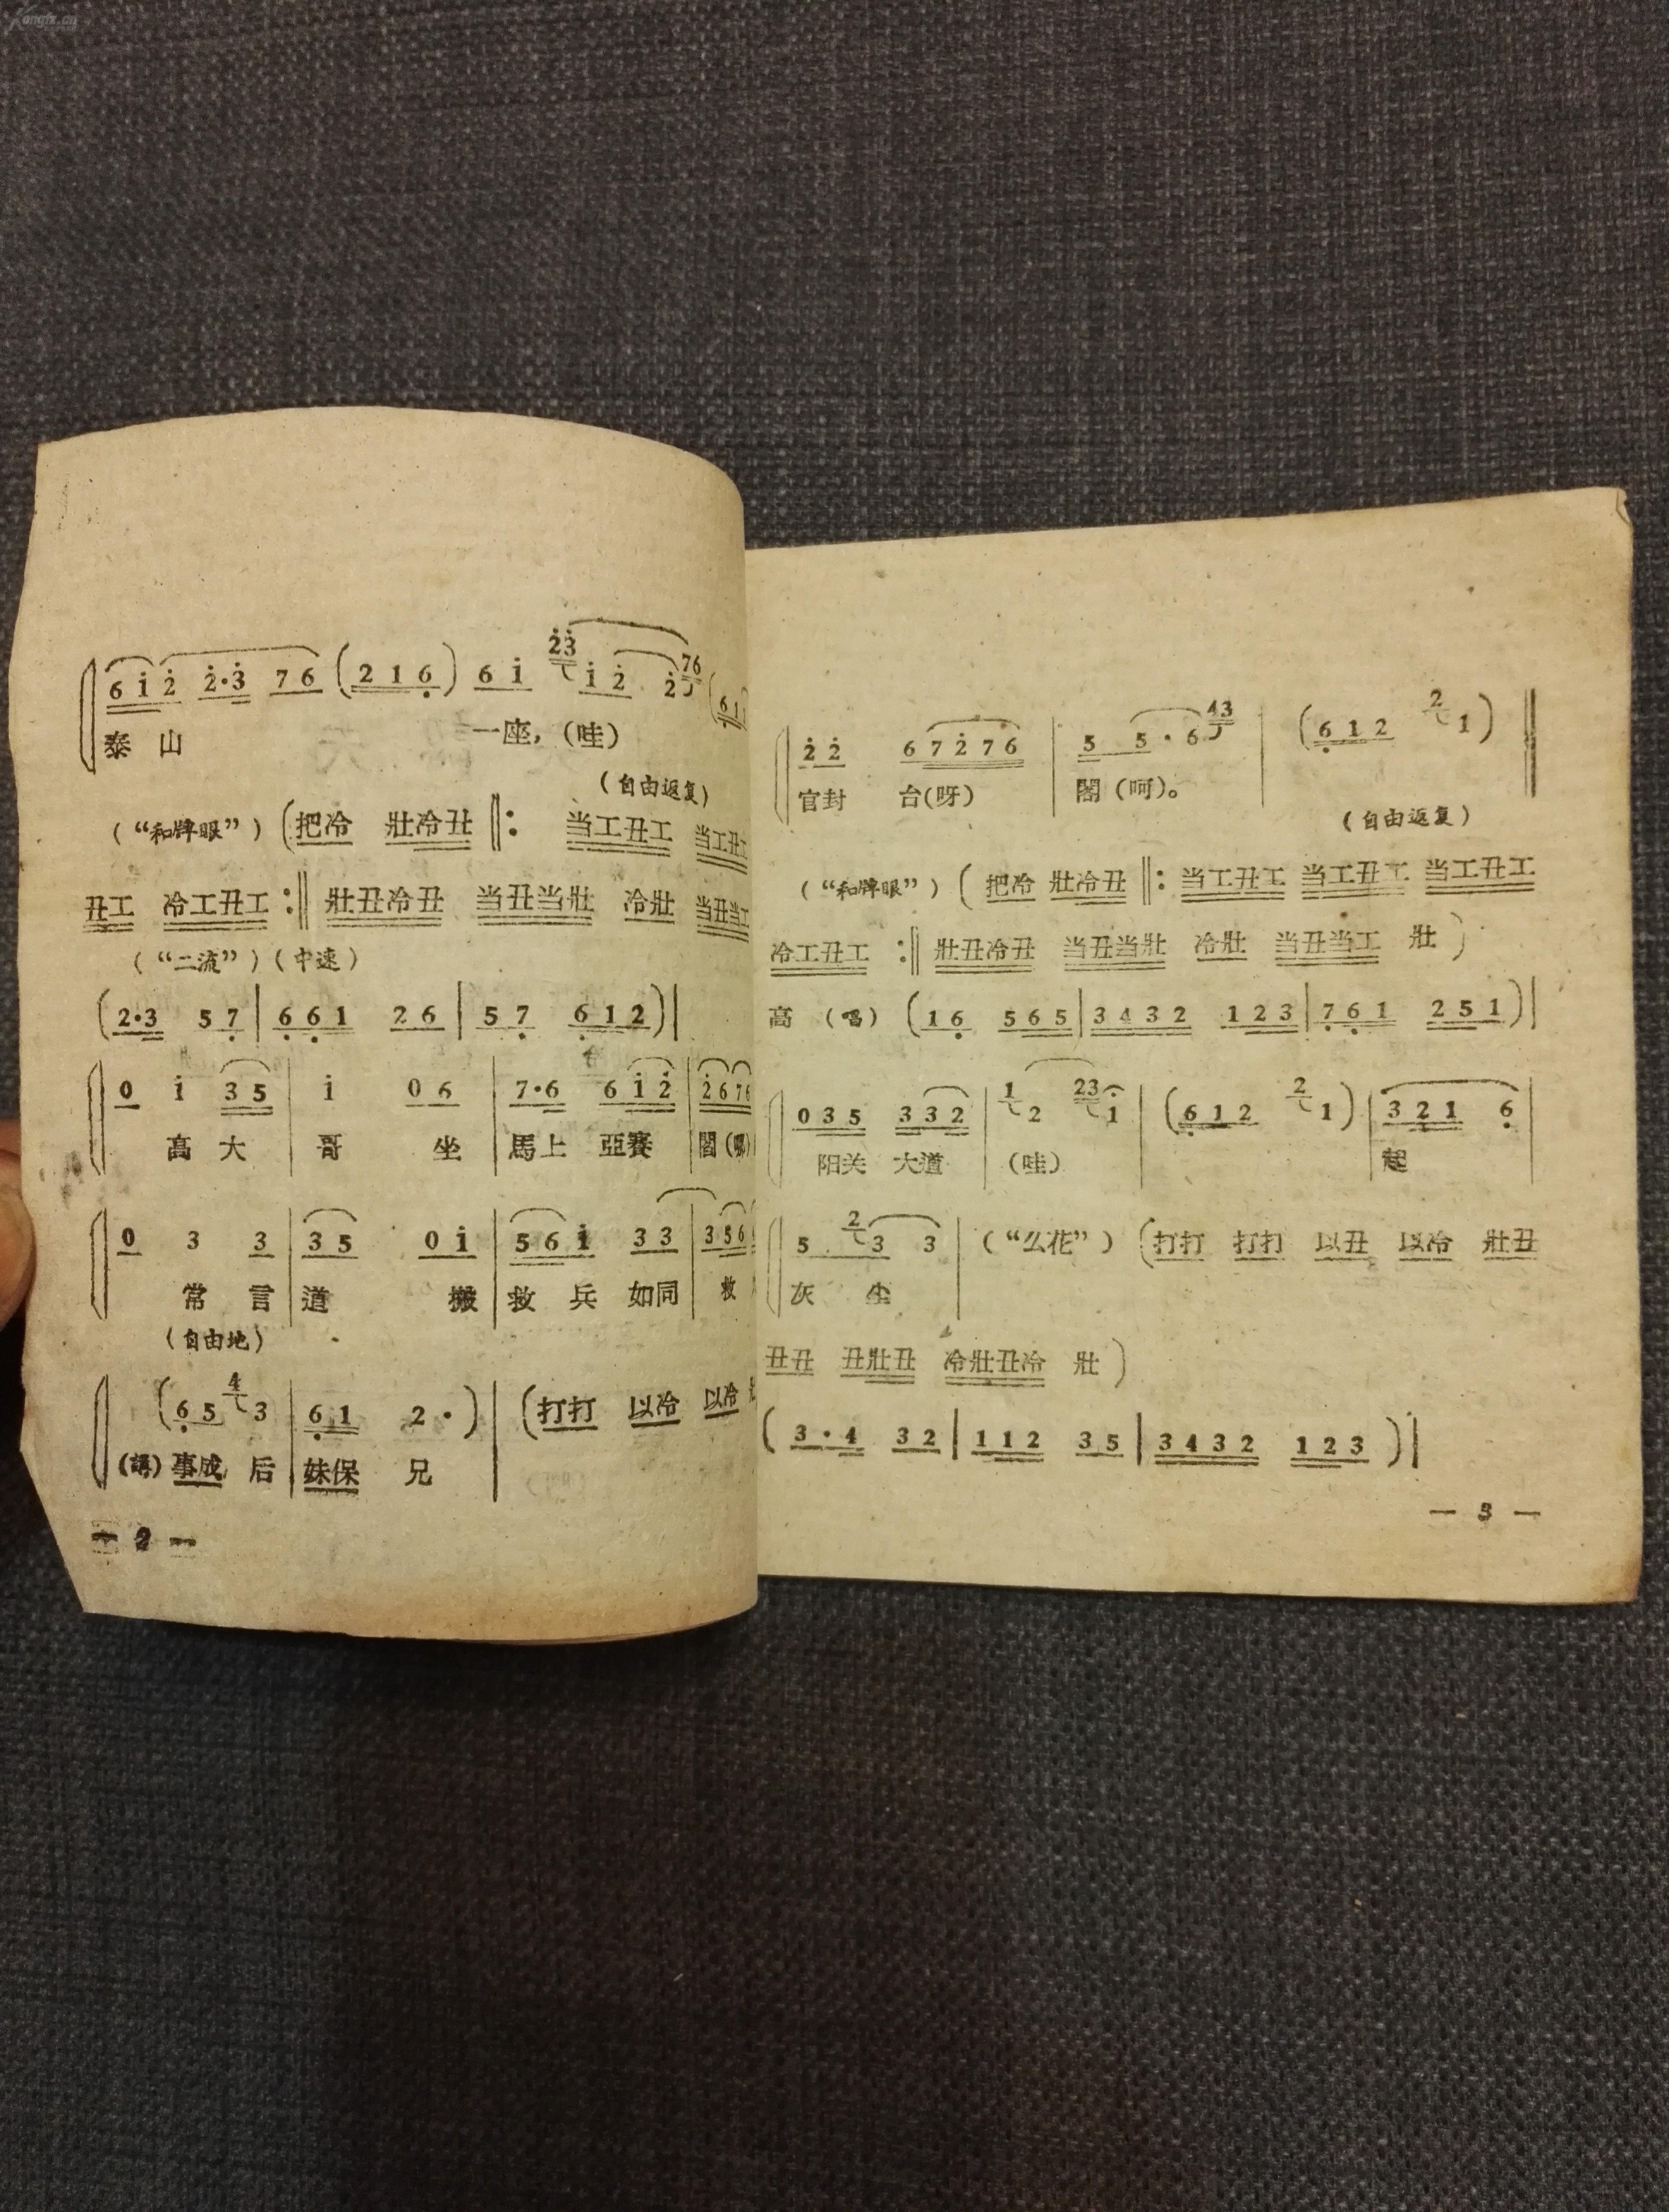 Kongfz.cn
6 i̇ 2̇ 2̇·3̇ 7 6 (2 1 6̣) 6 i̇ 2̇3̇ i̇ 2̇ 2̇ 76 (6 1
泰 山 一座，(哇)
(自由返复)
(“和牌眼”) (把冷 壯冷丑 ‖: 当工丑工 当工丑工
丑工 冷工丑工 :‖ 壯丑冷丑 当丑当壯 冷壯 当丑当工
(“二流”) (中速)
(2·3 5 7̣ | 6̣ 6̣ 1 2 6 | 5 7̣ 6̣ 1 2)|
0 i̇ 3 5 | i̇ 0 6 | 7·6 6 i̇ 2̇ | 2̇ 6 7 6
高 大 哥 坐 馬上 亞賽 閻
0 3 3 | 3 5 0 i̇ | 5 6 i̇ 3 3 | 3 5 6
常 言 道 搬 救 兵 如同 救
(自由地)
(6̣ 5 4 3 | 6̣ 1 2 ·) | (打打 以冷 以冷
(講) 事成 后 妹保 兄
— 2 —
2̇ 2̇ 6 7 2̇ 7 6 | 5 5 · 6 43 | (6̣ 1 2 2 1) ‖
官封 台(呀) 閣 (呵)。
(自由返复)
(“和牌眼”) (把冷 壯冷丑 ‖: 当工丑工 当工丑工 当工丑工
冷工丑工 :‖ 壯丑冷丑 当丑当壯 冷壯 当丑当工 壯)
高 (唱) (1 6̣ 5 6 5 | 3 4 3 2 1 2 3 | 7̣ 6̣ 1 2 5 1)|
0 3 5 3 3 2 | 1 2 23 1 | (6̣ 1 2 2 1) | 3 2 1 6̣ |
阳关 大道 (哇) 起
5 2 3 3 | (“么花”) (打打 打打 以丑 以冷 壯丑
灰 尘
丑丑 丑壯丑 冷壯丑冷 壯)
(3·4 3 2 | 1 1 2 3 5 | 3 4 3 2 1 2 3)|
— 3 —